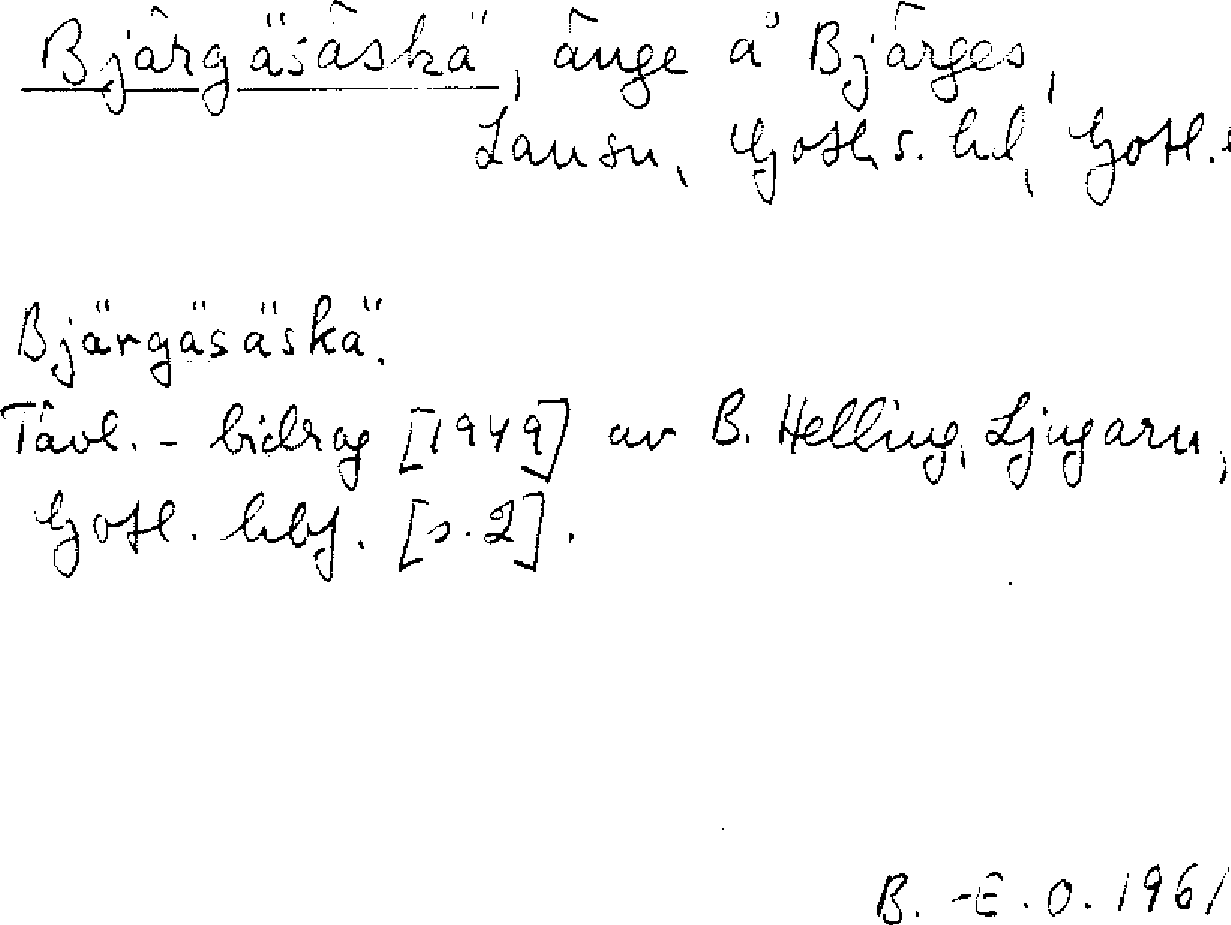 Bjärgäsäskä, änge å Bjärges,
Lau sn, Gotl. s. hd, Gotl.
Bjärgäsäskä.
Tävl.-bidrag [1949] av B. Helling, Ljugarn,
Gotl. hbf. [s.2].
B.-E.O. 1961